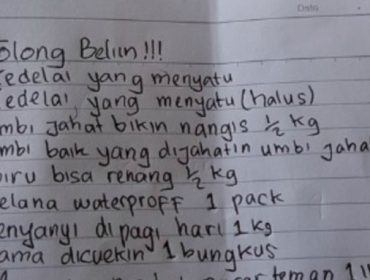 Date
olong Beliin!!!
edelai yang menyatu
edelai yang menyatu (halus)
mbi jahat bikin nangis 1/2 kg
mbi baik yang dijahatin umbi jaha
iru bisa renang 1/2 kg
elana waterproff 1 pack
enyanyi di pagi hari 1 kg
ama dicuekin 1 bungkus
teman 1